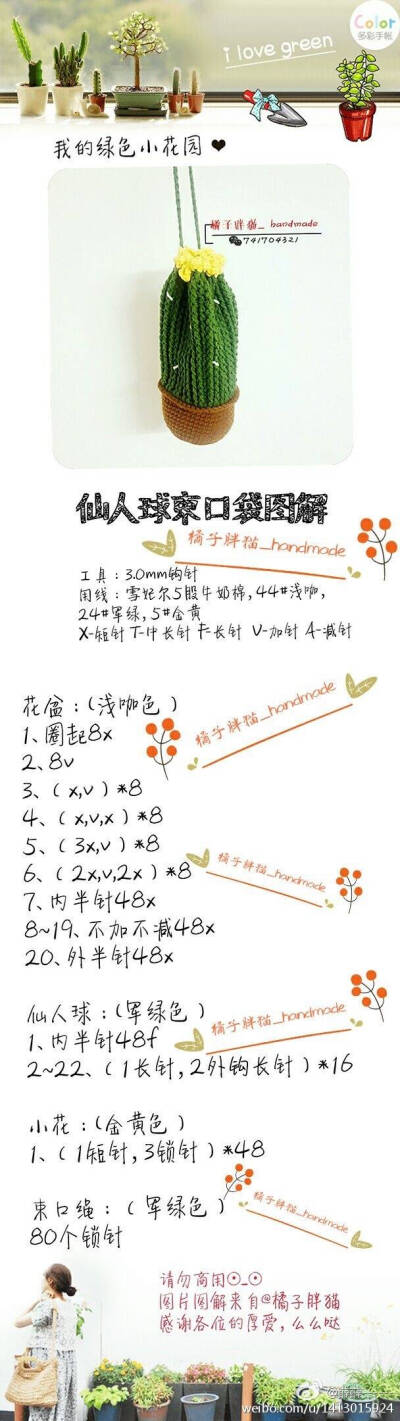 Color
多彩手帐
i love green
我的绿色小花园❤
橘子胖猫_handmade
741704321
仙人球束口袋图解
橘子胖猫_handmade
工具：3.0mm钩针
用线：雪妃尔5股牛奶棉，44#浅咖，
24#军绿，5#金黄
X-短针 T-中长针 F-长针 V-加针 A-减针
花盆：(浅咖色)
橘子胖猫_handmade
1、圈起8x
2、8v
3、(x,v)*8
4、(x,v,x)*8
5、(3x,v)*8
6、(2x,v,2x)*8
橘子胖猫_handmade
7、内半针48x
8~19、不加不减48x
20、外半针48x
仙人球：(军绿色)
橘子胖猫_handmade
1、内半针48f
2~22、(1长针，2外钩长针)*16
小花：(金黄色)
1、(1短针，3锁针)*48
束口绳：(军绿色)
橘子胖猫_handmade
80个锁针
请勿商用⊙_⊙
图片图解来自@橘子胖猫
感谢各位的厚爱，么么哒
weibo.com/u/1413015924